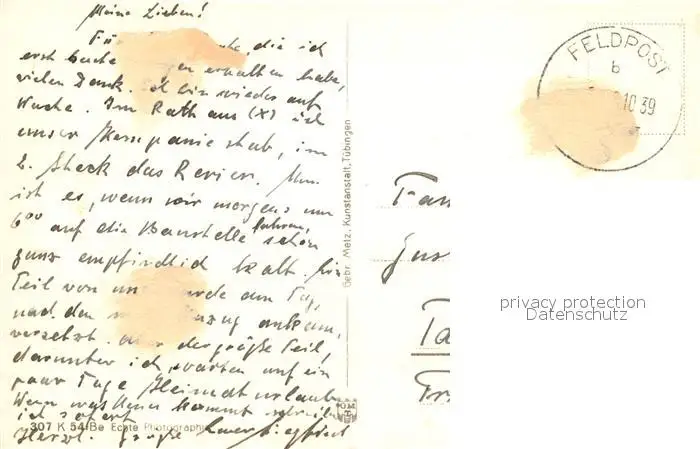 Meine Lieben!
Für die ich
erst heute erhalten habe,
vielen Dank. Ich bin wieder auf
Wache. Im Rathaus (X) ist
unser Kompaniestab, im
2. Stock das Revier. Nun
ist es, wenn wir morgens um
6⁰⁰ auf die Baustelle fahren, schon
ganz empfindlich kalt. Ein
Teil von uns wurde am Tag,
nach dem ankam,
versetzt. Aber der größte Teil,
darunter ich, warten auf ein
paar Tage Heimaturlaub.
Wenn was Neues kommt schreibe
ich sofort.
Herzl. Grüße Euer Siegfried
307 K 54/Be Echte Photographie
Gebr. Metz, Kunstanstalt, Tübingen
FELDPOST
b
10 39
privacy protection
Datenschutz